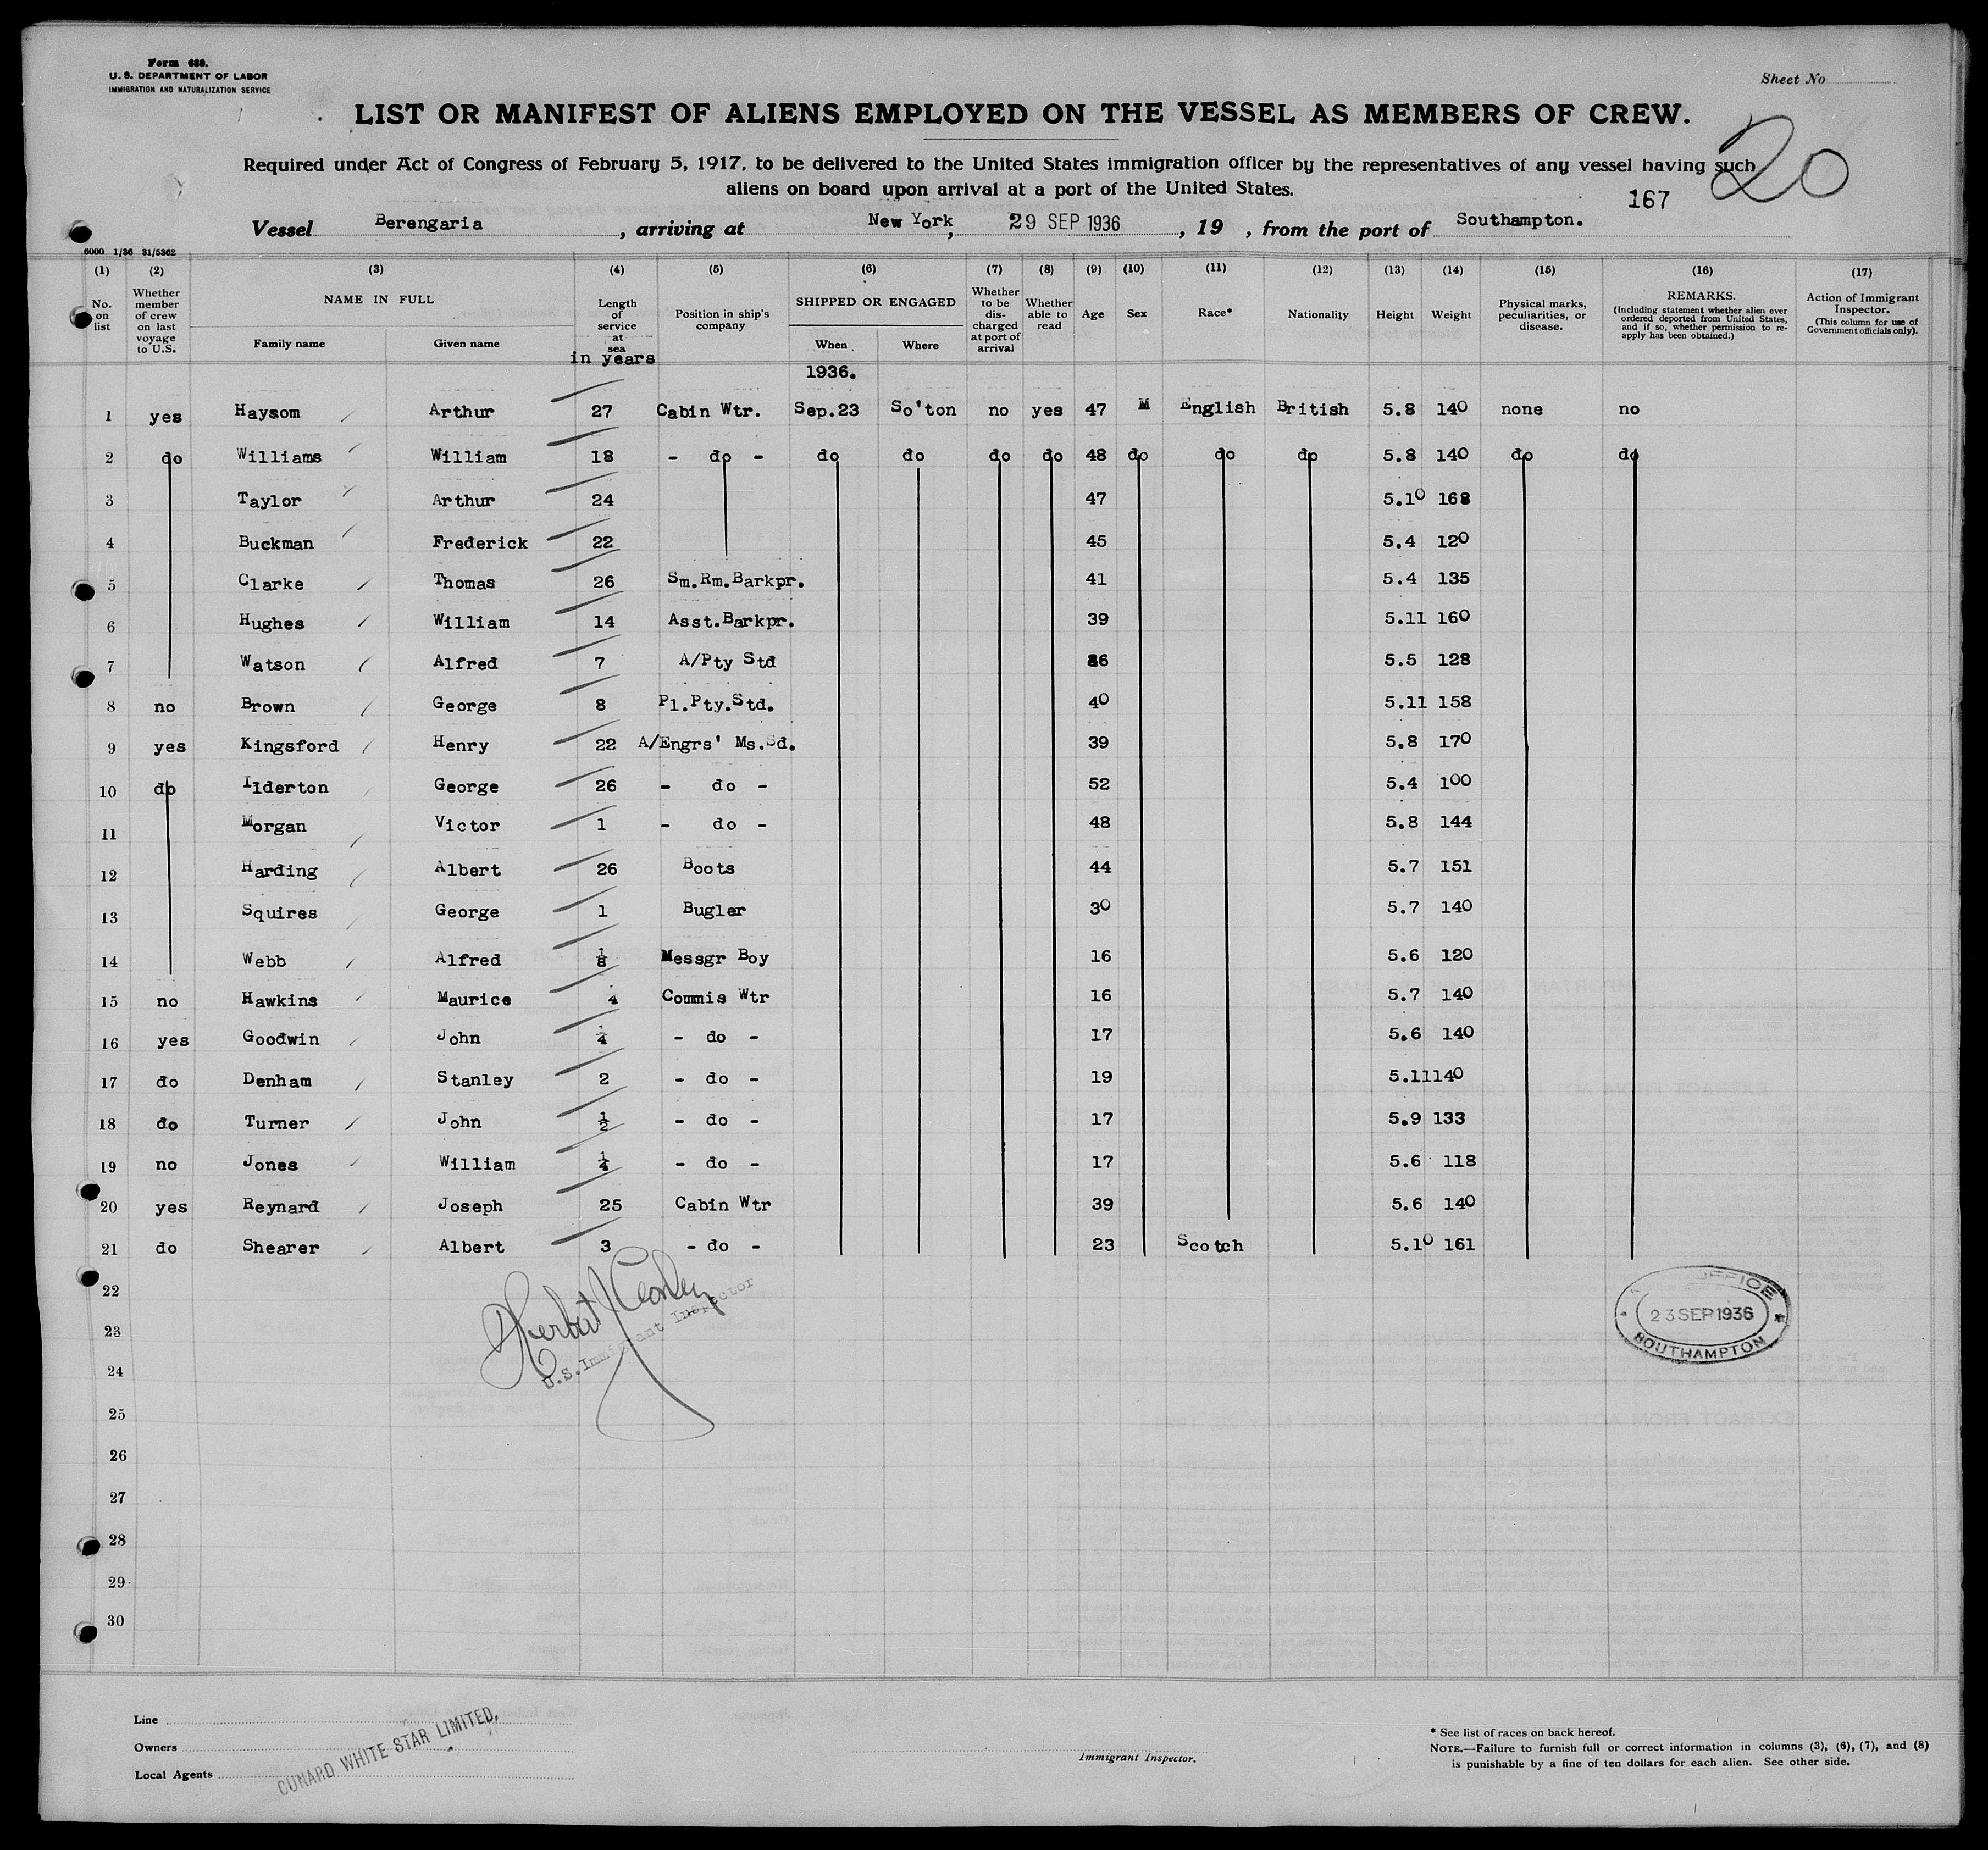 Form 680.
U. S. DEPARTMENT OF LABOR
IMMIGRATION AND NATURALIZATION SERVICE
Sheet No
LIST OR MANIFEST OF ALIENS EMPLOYED ON THE VESSEL AS MEMBERS OF CREW.
20
Required under Act of Congress of February 5, 1917, to be delivered to the United States immigration officer by the representatives of any vessel having such
aliens on board upon arrival at a port of the United States.
167
Vessel Berengaria, arriving at New York, 29 SEP 1936, 19 , from the port of Southampton.
6000 1/36 31/5362
(1) (2) (3) (4) (5) (6) (7) (8) (9) (10) (11) (12) (13) (14) (15) (16) (17)
No. on list
Whether member of crew on last voyage to U.S.
NAME IN FULL
Family name
Given name
Length of service at sea
in years
Position in ship's company
SHIPPED OR ENGAGED
When
Where
Whether to be discharged at port of arrival
Whether able to read
Age
Sex
Race*
Nationality
Height
Weight
Physical marks, peculiarities, or disease.
REMARKS.
(Including statement whether alien ever ordered deported from United States, and if so, whether permission to re-apply has been obtained.)
Action of Immigrant Inspector.
(This column for use of Government officials only).
1936.
1 yes Haysom Arthur 27 Cabin Wtr. Sep.23 So'ton no yes 47 M English British 5.8 140 none no
2 do Williams William 18 - do - do do do do 48 do do do 5.8 140 do do
3 Taylor Arthur 24 47 5.10 168
4 Buckman Frederick 22 45 5.4 120
5 Clarke Thomas 26 Sm.Rm.Barkpr. 41 5.4 135
6 Hughes William 14 Asst.Barkpr. 39 5.11 160
7 Watson Alfred 7 A/Pty Std 5.5 128
8 no Brown George 8 Pl.Pty.Std. 40 5.11 158
9 yes Kingsford Henry 22 A/Engrs' Ms.Sd. 39 5.8 170
10 do Ilderton George 26 - do - 52 5.4 100
11 Morgan Victor 1 - do - 48 5.8 144
12 Harding Albert 26 Boots 44 5.7 151
13 Squires George 1 Bugler 30 5.7 140
14 Webb Alfred 1/8 Messgr Boy 16 5.6 120
15 no Hawkins Maurice 4 Commis Wtr 16 5.7 140
16 yes Goodwin John 1/4 - do - 17 5.6 140
17 do Denham Stanley 2 - do - 19 5.11 140
18 do Turner John 1/2 - do - 17 5.9 133
19 no Jones William 1/4 - do - 17 5.6 118
20 yes Reynard Joseph 25 Cabin Wtr 39 5.6 140
21 do Shearer Albert 3 - do - 23 Scotch 5.10 161
22
OFFICE
23 SEP 1936
SOUTHAMPTON
23
U.S. Immigrant Inspector
24
25
26
27
28
29
30
Line
Owners
Local Agents
CUNARD WHITE STAR LIMITED,
Immigrant Inspector.
* See list of races on back hereof.
NOTE.—Failure to furnish full or correct information in columns (3), (6), (7), and (8)
is punishable by a fine of ten dollars for each alien. See other side.